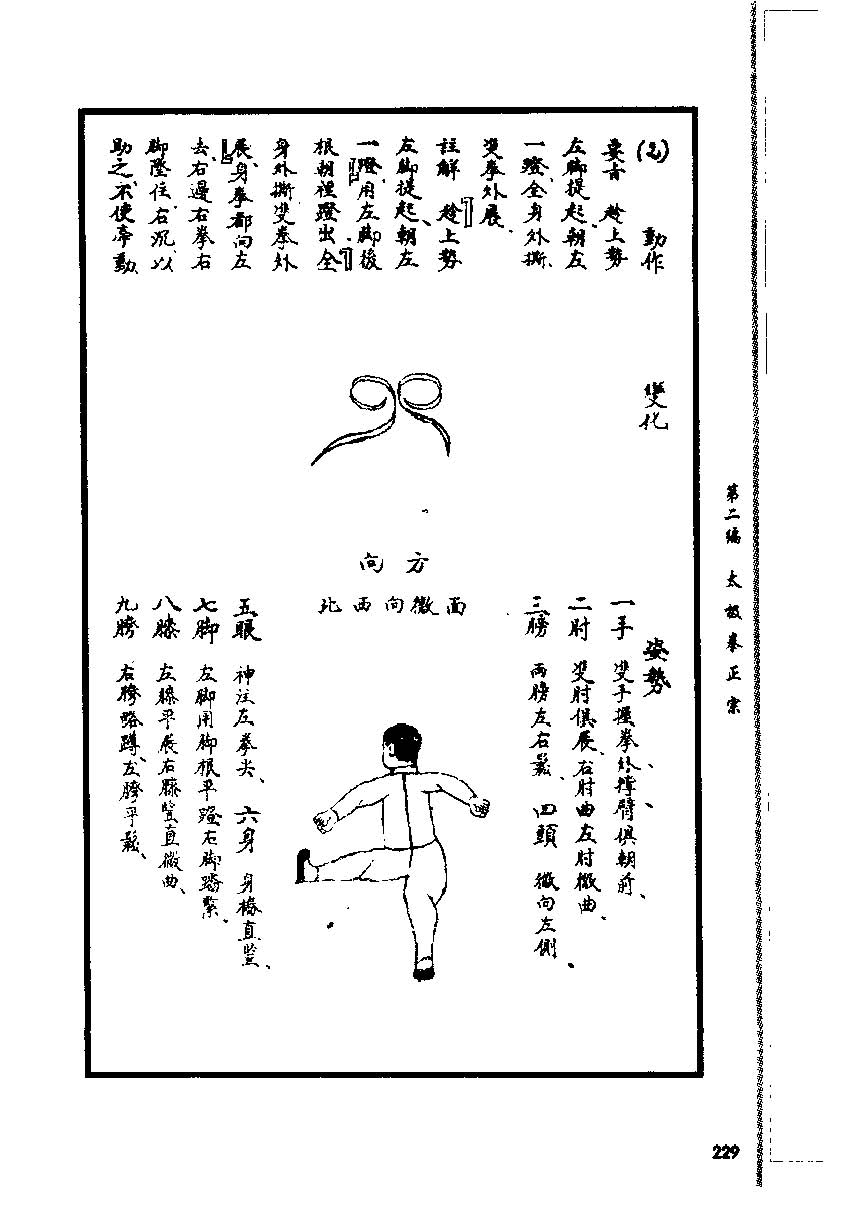 (2) 動作
要言 趁上勢
左脚提起、朝左
一蹬全身外撕、
雙拳外展、
註解 趁上勢
左脚提起、朝左
一蹬、用左脚後
根朝裡蹬出、全
身外撕雙拳外
展、身拳都向左
去、右邊右拳右
脚墜住、右沉、以
助之、不使牽動、
變化
方向
面微向西北
姿勢
一手 雙手握拳、外擰臂俱朝前、
二肘 雙肘俱展、右肘曲左肘微曲、
三膀 兩膀左右鬆、 四頭 微向左側、
五眼 神注左拳尖、 六身 身樁直豎、
七脚 左脚用脚根平蹬右脚踏緊、
八膝 左膝平展右膝豎直微曲、
九胯 右胯略蹲、左胯平鬆、
第二編 太极拳正宗
229